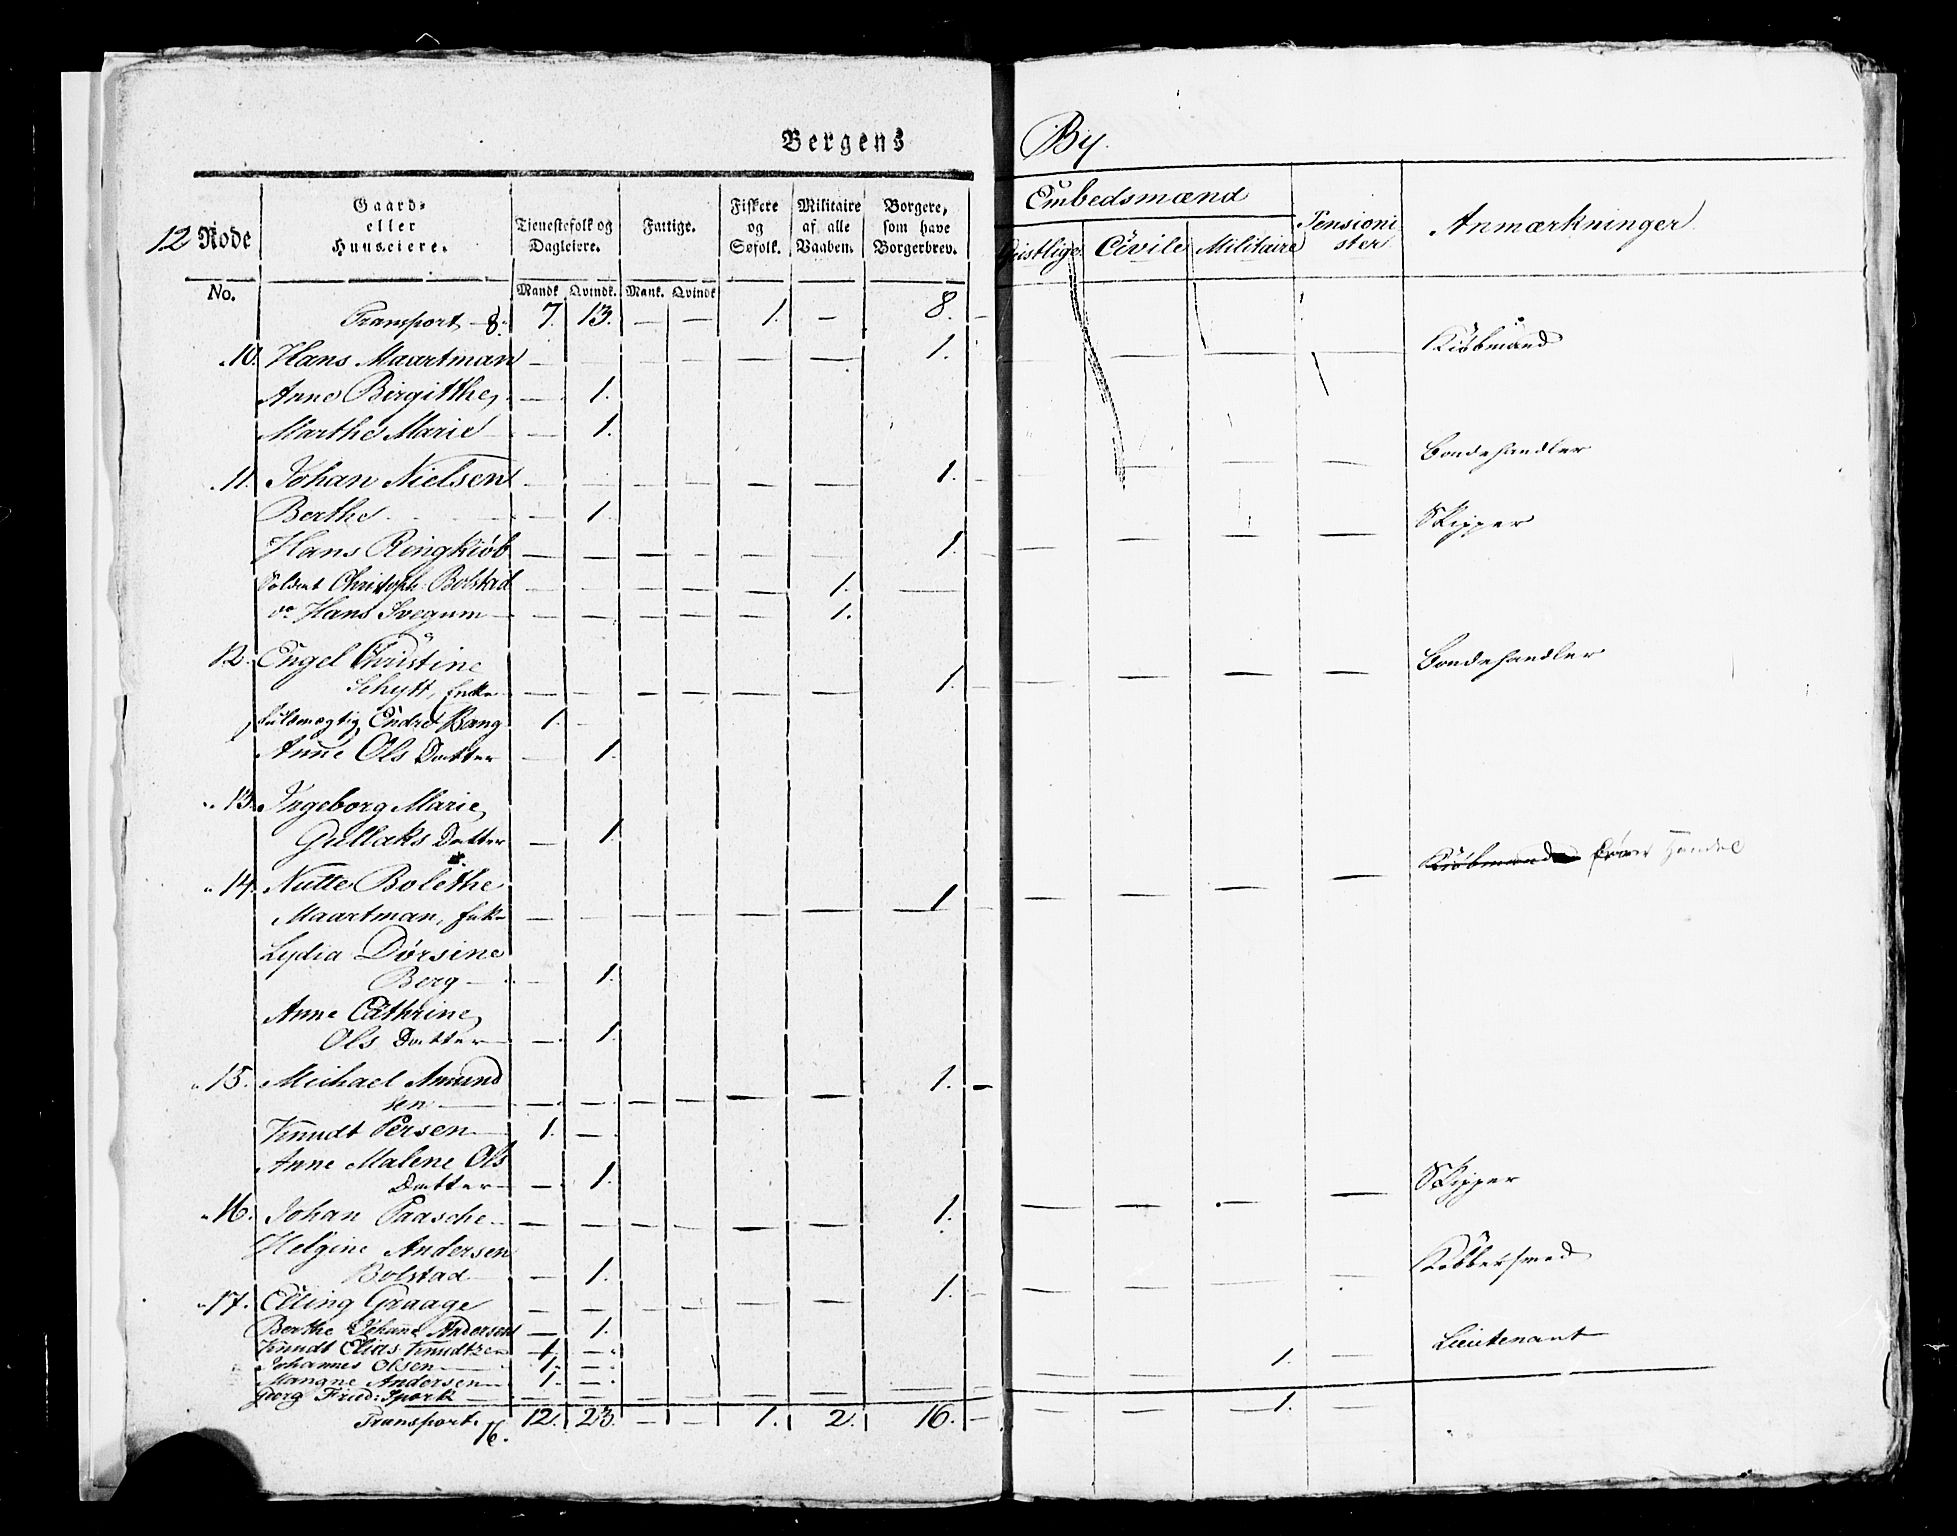 Bergens By.
12 Rode
Gaard- eller Huuseiere.
Tienestefolk og Dagleiere.
Fattige.
Fiskere og Søfolk.
Militaire af alle Vaaben.
Borgere, som have Borgerbrev.
Embedsmænd
Pensionister
Anmærkninger
Geistlige Civile Militaire
No. Mandk. Qvindk. Mank. Qvindk
Transport 8. 7. 13. — — 1. — 8. —
10. Hans Maartman — — — — — — 1. — — — — Kiøbmand
Anne Birgitthe, — 1.
Marthe Marie — 1.
11. Johan Nielsen — — — — — — 1. — — — — Bondehandler
Berthe — 1.
Hans Ringkiöb — — — — — — 1. — — — — Skipper
Soldat Christoph: Bolstad — — — — — 1. —
do Hans Svegum — — — — — 1.
12. Engel Christine
Schytt, Enke — — — — — — 1. — — — — Bondehandler
Fuldmægtig Endre Bang 1. —
Anne Ols Datter — 1.
13. Ingeborg Marie,
Gullaks Datter — 1.
14. Nutte Bolethe 1 — — — — Kiøbmand Handel
Maartman, Enke — — — — — — —
Lydia Dorsine
Berg — — 1.
Anne Cathrine,
Ols Datter — 1.
15. Michael Amund 1. —
sen — — — — — — —
Knudt Persen 1. —
Anne Malene Ols
Datter — 1.
16. Johan Paasche — — — — — — 1. — — — — Skipper
Helgine Andersen
Bolstad — 1.
17. Elling Graage — — — — — — 1. — — — — Kobbersmed
Berthe Johane Andersen — 1.
Knudt Elias Knudtzen 1 —
Johannes Olsen 1. —
Mangne Andersen 1. —
Georg Fried: Spørck — — — — — — — — — 1. — Lieutenant
Transport. 16. 12. 23. — — 1. 2. 16. — — — 1. —